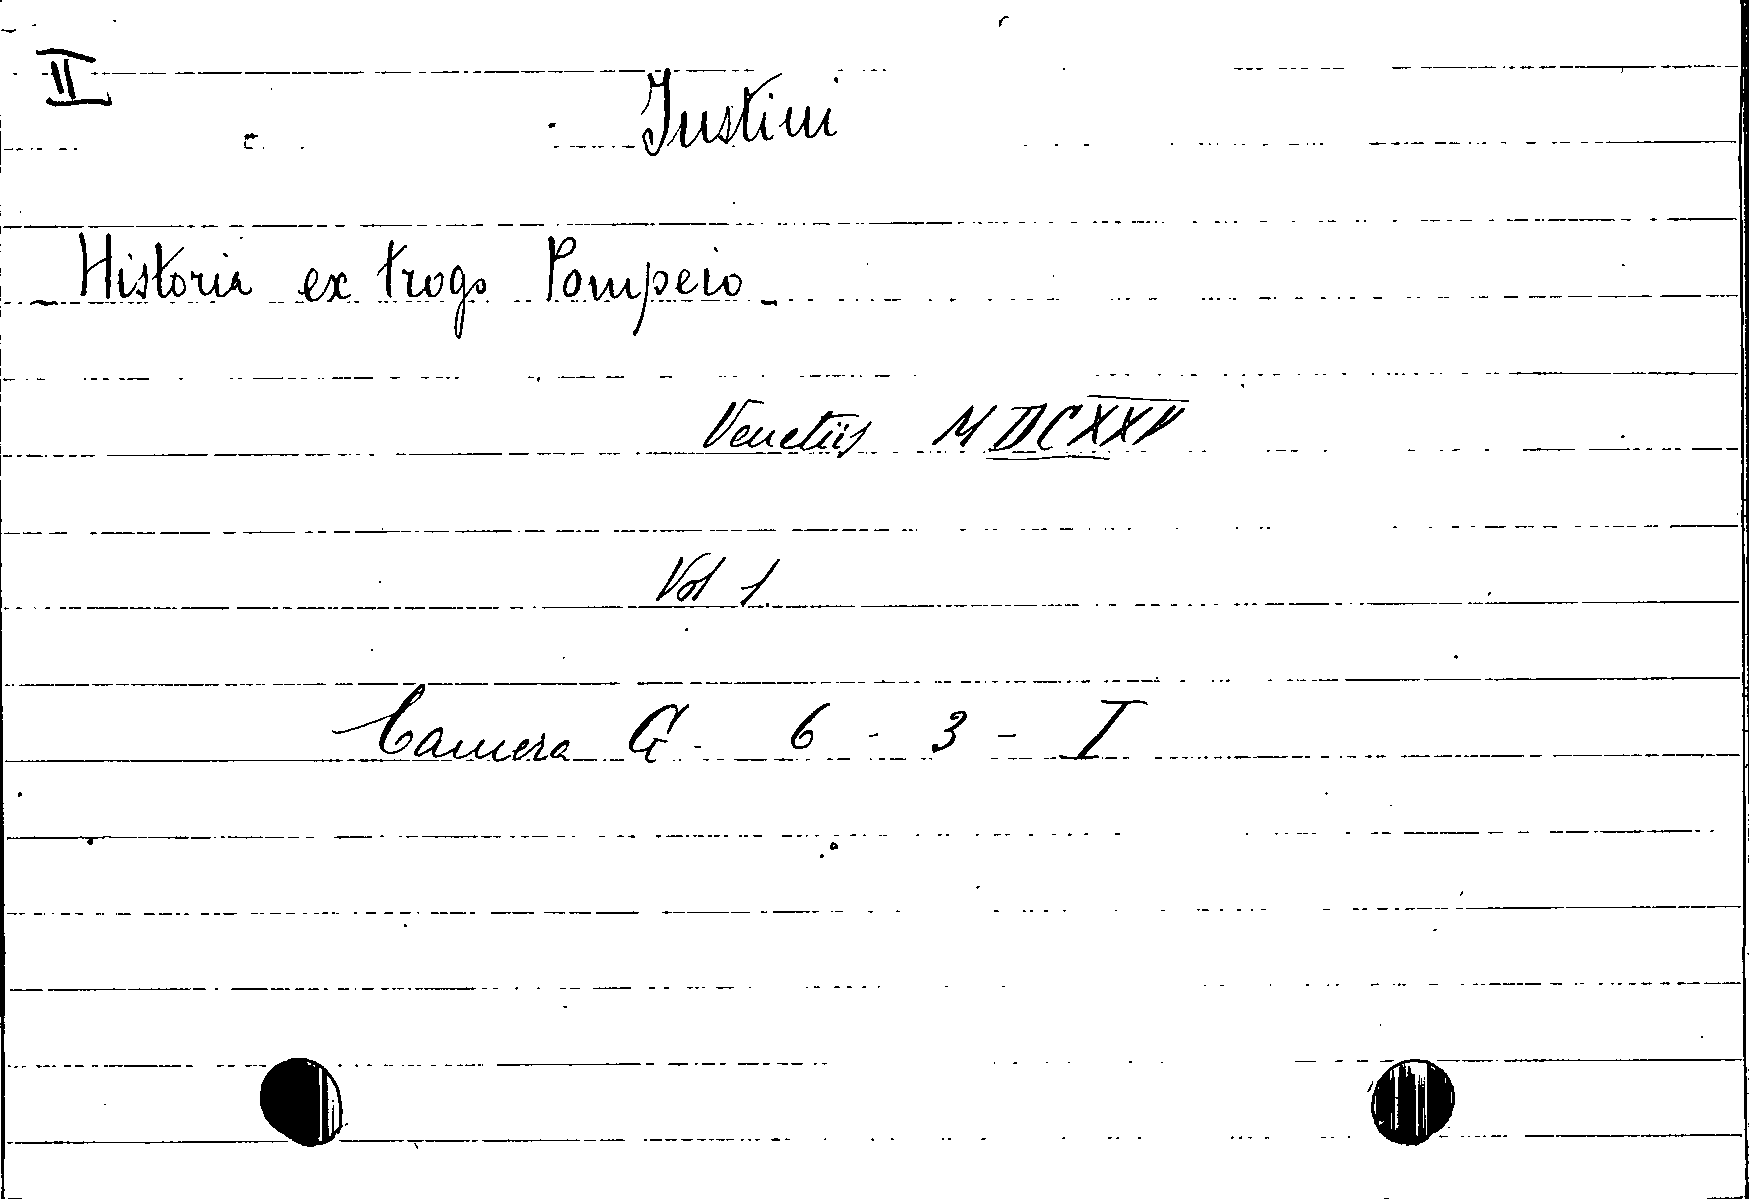 II
Justini
- Historia ex trogo Pompeio -
Venetiis MDCXXV
Vol 1
Camera G - 6 - 3 - I